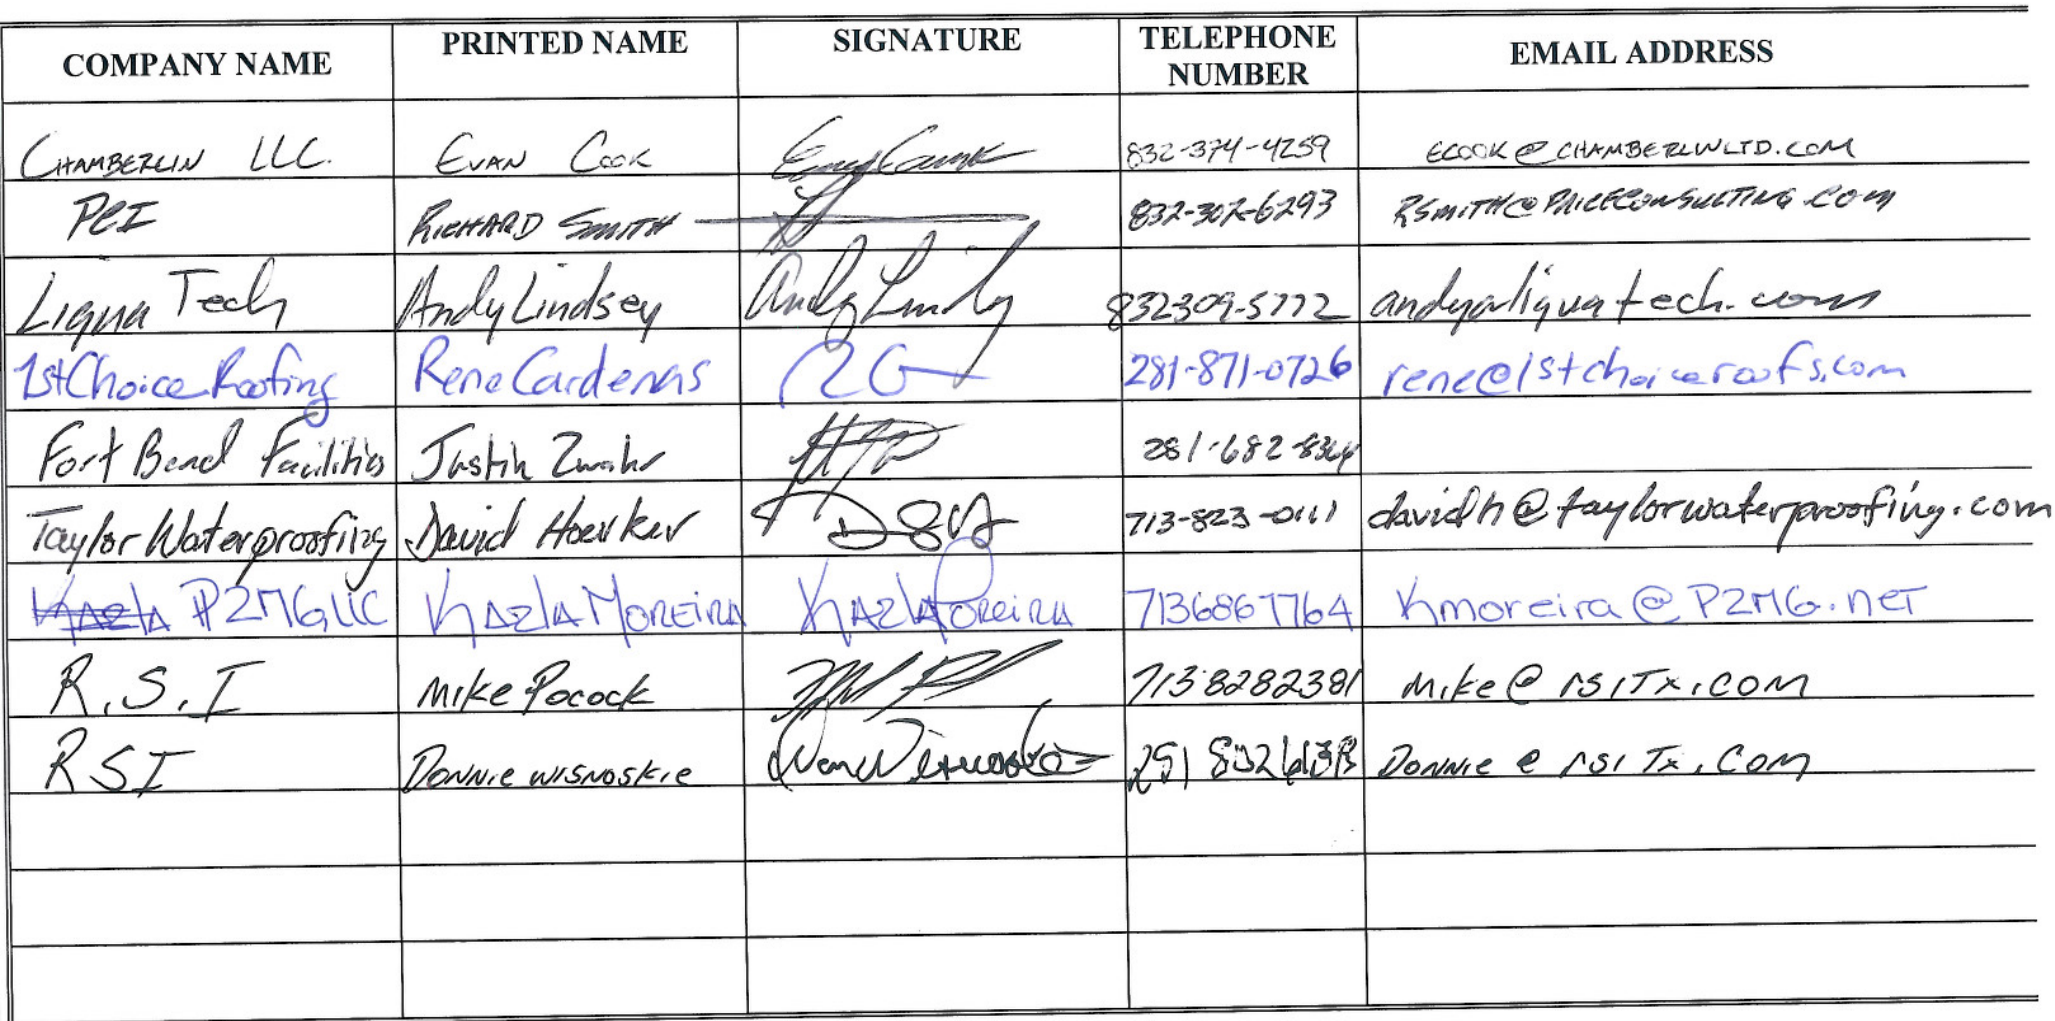 COMPANY NAME PRINTED NAME SIGNATURE TELEPHONE NUMBER EMAIL ADDRESS
CHAMBERLIN LLC. EVAN COOK 832-374-4259 ECOOK@CHAMBERLINLTD.COM
PCI RICHARD SMITH 832-302-6293 RSMITH@PRICECONSULTING.COM
Liqua Tech Andy Lindsey Andy Lindsey 832309-5772 andy@liquatech.com
1st Choice Roofing Rene Cardenas RC 281-871-0726 rene@1stchoiceroofs.com
Fort Bend Facilities Justin 281-682-8364
Taylor Waterproofing David Hoerker 713-823-0111 davidh@taylorwaterproofing.com
P2MG LLC KARLA MOREIRA KARLA MOREIRA 7136867764 Kmoreira@P2MG.net
R.S.I Mike Pocock 7138282381 Mike@rsiTx.com
RSI DONNIE WISNOSKIE DONNIE@rsiTx.Com